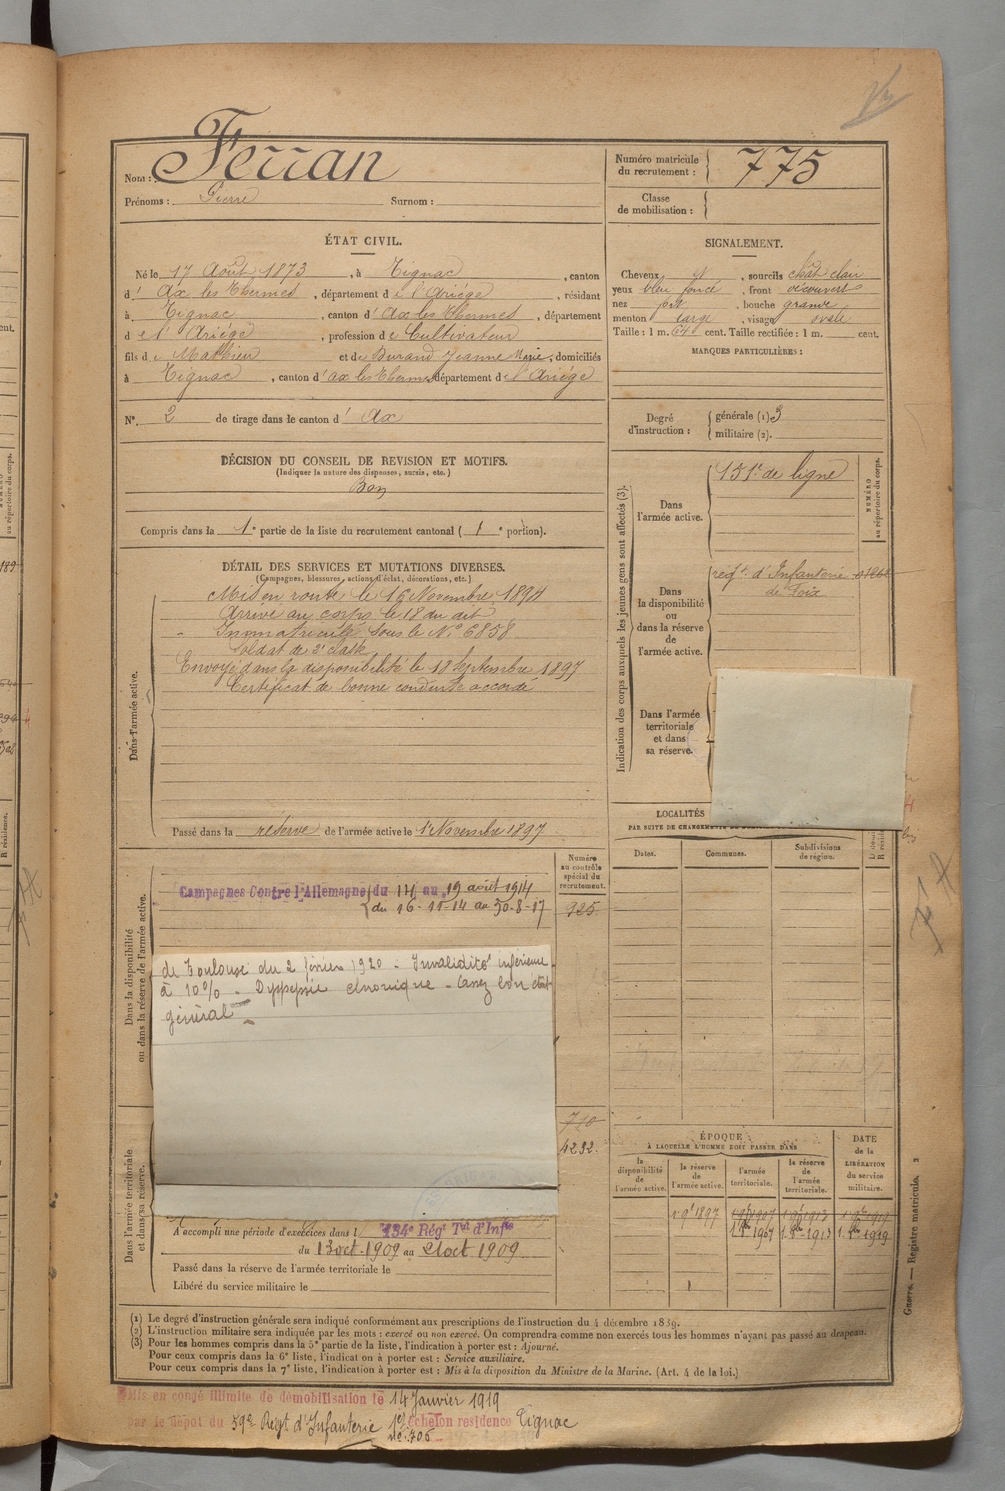 Nom : Ferran
Prénoms : Pierre Surnom :
Numéro matricule du recrutement : 775
Classe de mobilisation :
ÉTAT CIVIL.
Né le 17 Août 1873, à Tignac, canton
d' Ax les Thermes, département de l'Ariége, résidant
à Tignac, canton d' Ax les Thermes, département
de l'Ariége, profession de Cultivateur
fils de Mathieu et de Durand Jeanne Marie, domiciliés
à Tignac, canton d' Ax les Thermes département de l'Ariége
N°. 2 de tirage dans le canton d' Ax
DÉCISION DU CONSEIL DE REVISION ET MOTIFS.
(Indiquer la nature des dispenses, sursis, etc.)
Bon
Compris dans la 1e partie de la liste du recrutement cantonal ( 1e portion).
DÉTAIL DES SERVICES ET MUTATIONS DIVERSES.
(Campagnes, blessures, actions d'éclat, décorations, etc.)
Dans l'armée active.
Mis en route le 16 Novembre 1894
Arrivé au corps le 18 du dit
Immatriculé sous le N° 6858
Soldat de 2e classe
Envoyé dans la disponibilité le 18 Septembre 1897
Certificat de bonne conduite accordé
Passé dans la réserve de l'armée active le 1er Novembre 1897
Dans la disponibilité ou dans la réserve de l'armée active.
Numéro au contrôle spécial du recrutement.
925
Campagnes Contre l'Allemagne du 14 au 19 août 1914
du 16-11-14 au 30-8-17
de Toulouse du 2 février 1920 - Invalidité inférieure
à 10% - Dyspepsie chronique - assez bon état
général
Dans l'armée territoriale et dans sa réserve.
710
4232.
A accompli une période d'exercices dans l 134e Régt Tal d'Infie
du 13 oct. 1909 au 21 oct 1909
Passé dans la réserve de l'armée territoriale le
Libéré du service militaire le
SIGNALEMENT.
Cheveux, sourcils chât clair
yeux bleu foncé, front découvert
nez, bouche grande
menton large, visage ovale
Taille : 1 m. 64 cent. Taille rectifiée : 1 m. cent.
MARQUES PARTICULIÈRES :
Degré d'instruction : générale (1). 3
militaire (2).
Indication des corps auxquels les jeunes gens sont affectés (3).
NUMÉRO au répertoire du corps.
Dans l'armée active.
151e de ligne
Dans la disponibilité ou dans la réserve de l'armée active.
régt. d'Infanterie
de Foix
Dans l'armée territoriale et dans sa réserve.
LOCALITÉS
PAR SUITE DE CHANGEMENTS
Dates. Communes. Subdivisions de région.
ÉPOQUE
À LAQUELLE L'HOMME DOIT PASSER DANS
la disponibilité de l'armée active. la réserve de l'armée active. l'armée territoriale. la réserve de l'armée territoriale. DATE de la LIBÉRATION du service militaire.
1 9bre 1897 1 9bre 1907 1 9bre 1913 1 9bre 1919
1. 8bre 1907 1. 8bre 1913 1. 8bre 1919
Guerre. — Registre matricule. 2
(1) Le degré d'instruction générale sera indiqué conformément aux prescriptions de l'instruction du 4 décembre 1889.
(2) L'instruction militaire sera indiquée par les mots : exercé ou non exercé. On comprendra comme non exercés tous les hommes n'ayant pas passé au drapeau.
(3) Pour les hommes compris dans la 5e partie de la liste, l'indication à porter est : Ajourné.
Pour ceux compris dans la 6e liste, l'indication à porter est : Service auxiliaire.
Pour ceux compris dans la 7e liste, l'indication à porter est : Mis à la disposition du Ministre de la Marine. (Art. 4 de la loi.)
Mis en congé illimité de démobilisation le 14 Janvier 1919
par le dépôt du 59e Régt d'Infanterie 1er échelon résidence Tignac
N° 706